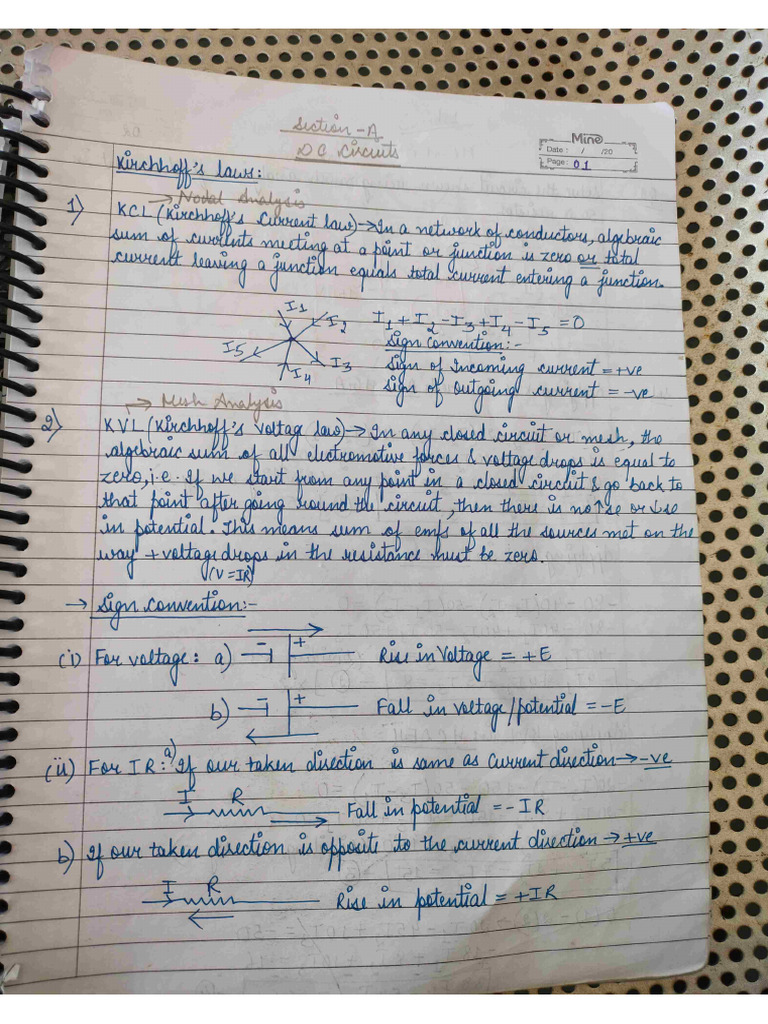 Section-A
DC Circuits
Mine
Date : / /20
Page: 01
Kirchhoff's laws:
→ Nodal Analysis
1) KCL (Kirchhoff's Current law)→In a network of conductors, algebraic
sum of currents meeting at a point or junction is zero or total
current leaving a junction equals total current entering a junction.
I1 I2 I3 I4 I5
I1+I2-I3+I4-I5=0
Sign Convention:-
Sign of Incoming current = +ve
Sign of Outgoing current = -ve
→ Mesh Analysis
2) KVL (Kirchhoff's Voltag law)→In any closed circuit or mesh, the
algebraic sum of all electromotive forces & voltage drops is equal to
zero, i.e. If we start from any point in a closed circuit & go back to
that point after going round the circuit, then there is no ↑se or ↓se
in potential. This means sum of emfs of all the sources met on the
way + voltage drops in the resistance must be zero.
(V=IR)
→ Sign Convention:-
(i) For voltage: a) - + Rise in Voltage = +E
b) - + Fall in voltage/potential = -E
(ii) For IR: a) If our taken direction is same as current direction → -ve
I R Fall in potential = -IR
b) If our taken direction is opposite to the current direction → +ve
I R Rise in potential = +IR